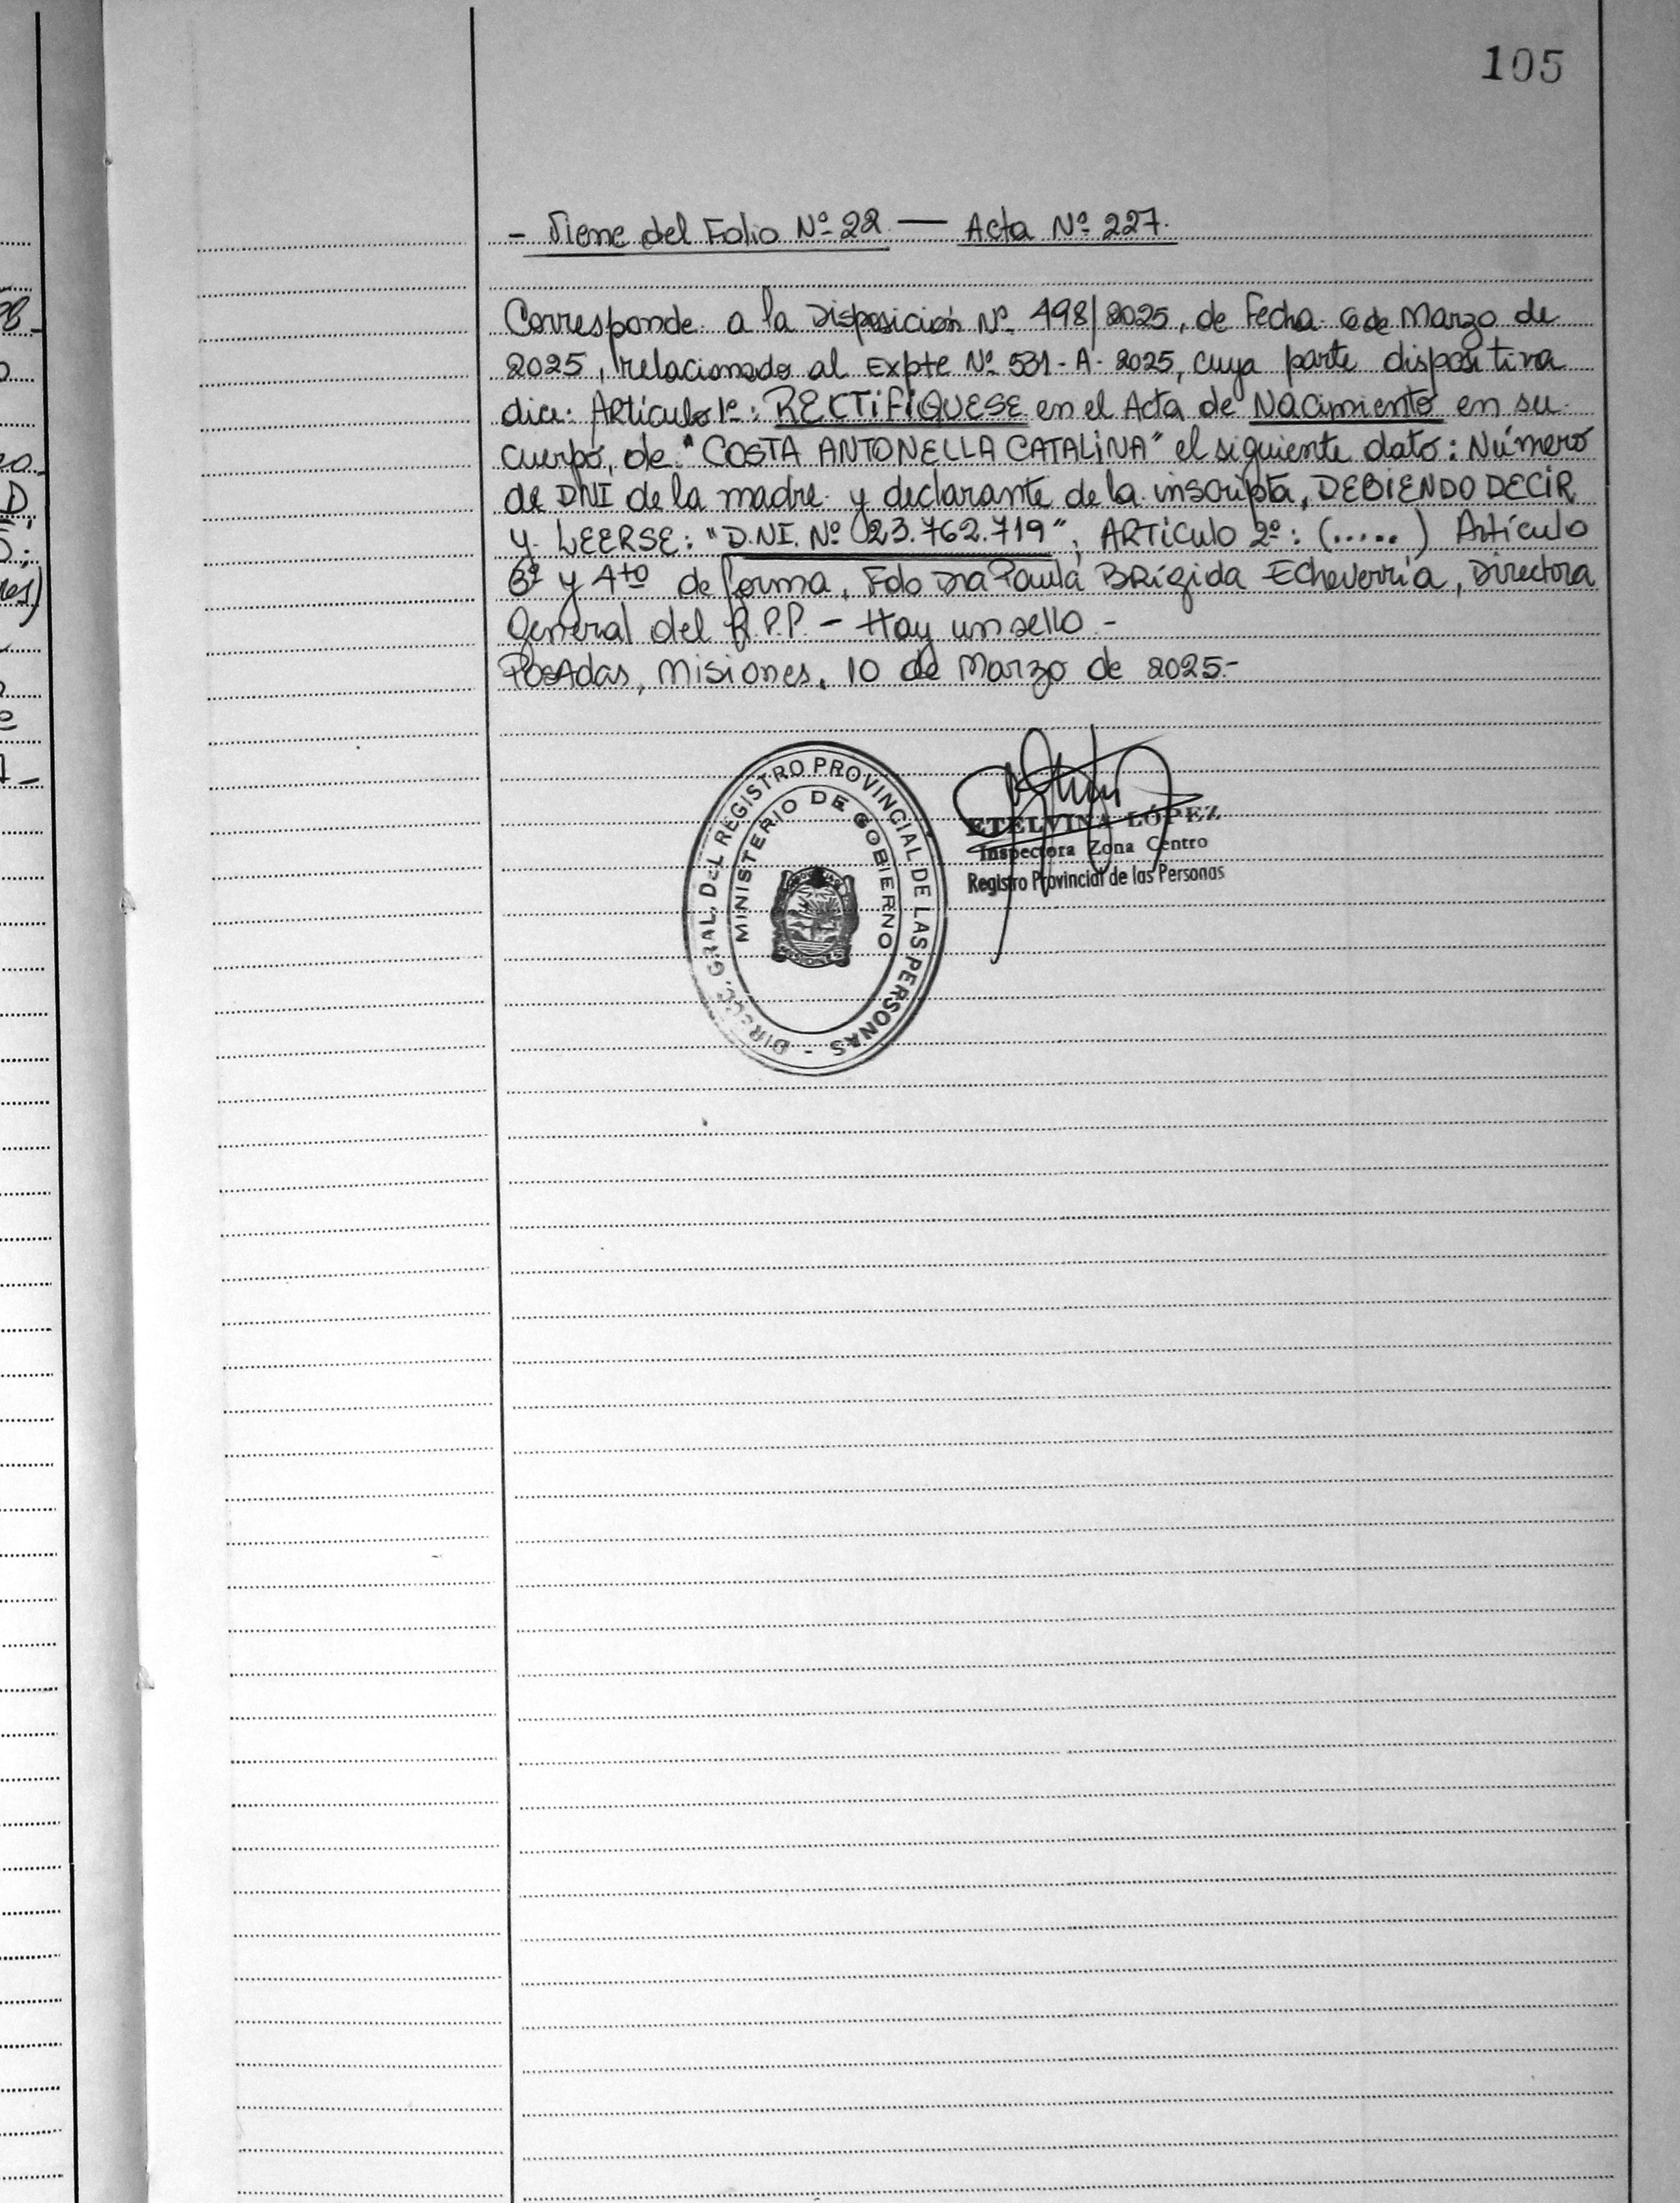 105
- Viene del Folio Nº 22 — Acta Nº 227.
Corresponde a la Disposición Nº 498/2025, de Fecha 6 de Marzo de
2025, relacionado al Expte Nº 531-A-2025, cuya parte dispositiva
dice: Artículo 1º: RECTIFIQUESE en el Acta de Nacimiento en su
cuerpo, de "COSTA ANTONELLA CATALINA" el siguiente dato: Número
de DNI de la madre y declarante de la inscripta, DEBIENDO DECIR
y LEERSE: "D.NI. Nº 23.762.719", ARTÍCULO 2º: (.....) Artículo
3º y 4to de forma. Fdo Dra Paula BRígida Echeverría, Directora
General del R.P.P. - Hay un sello.-
Posadas, Misiones, 10 de Marzo de 2025.-
DIREC. GRAL. DEL REGISTRO PROVINCIAL DE LAS PERSONAS -
MINISTERIO DE GOBIERNO
ETELVINA LÓPEZ
Inspectora Zona Centro
Registro Provincial de las Personas